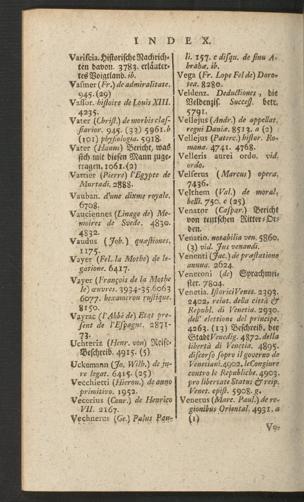 INDEX.
Variscia. Historische Nachrich-
ten davon. 3783. erläuter-
tes Voigtland. ib.
Vasmer (Fr.) de admiralitate.
945. (29)
Vassor. histoire de Louis XIII.
4235.
Vater (Christ.) de morbis clas-
siarior. 945. (32) 5961. b
(101) physiologia. 5918.
Vater (Haums) Bericht, was
sich mit diesen Mann zuge-
tragen. 1061. (2)
Vattier (Pierre) l'Egypte de
Murtadi. 2888.
Vauban. d'une dixme royale.
6708.
Vauciennes (Linage de) Me-
moires de Suede. 4830.
4832.
Vaudus (Joh.) quæstiones,
1175.
Vayer (Fel. la Mothe) de le-
gatione. 6417.
Vayer (François de la Mothe
le) œuvres. 3934-35. 6063
6077. hexameron rustique.
8150.
Vayrac (l'Abbé de) Etat pre-
sent de l'Espagne. 2871-
73.
Uchteritz (Henr. von) Reise-
Beschreib. 4915. (5)
Uckomann (Jo. Wilh.) de ju-
re legat. 6415. (25)
Vecchietti (Hieron.) de anno
primitivo. 1952.
Vecerius (Conr.) de Henrico
VII. 2167.
Vechnerus (Ge.) Palus Pan-
li. 157. e disqu. de sinu A-
brahæ. ib.
Vega (Fr. Lope Fel de) Doro-
tea. 8280.
Veldenz. Deductiones, die
Veldenzis. Success. betr.
5791.
Vellejus (Andr.) de appellat.
regni Dania. 8513. a (2)
Vellejus (Paterc.) histor. Ro-
mana. 4741. 4768.
Velleris aurei ordo. vid.
ordo.
Velserus (Marcus) opera.
7436.
Velthem (Val.) de moral.
belli. 750. e (25)
Venator (Caspar) Bericht
von teutschen Ritter-Or-
den.
Venatio. notabilia ven. 5860.
(3) vid. Jus venandi.
Venenti (Jac.) de præstatione
annua. 2624.
Veneroni (de) Sprachmei-
ster. 7804.
Venetia. Istorici Venet. 2393.
2402. relat. della città &
Republ. di Venetia. 2930.
dell' elettione del principe.
4263. (13) Beschreib. der
Stadt Venedig. 4872. della
libertà di Venetia. 4895.
discorso sopra il governo de
Venetiani. 4902. le Congiure
contro le Republiche. 4903.
pro libertate Status & reip.
Venet. epist. 5908. g.
Venerus (Marc. Paul.) de re-
gionibus Oriental. 4931. a
(1)